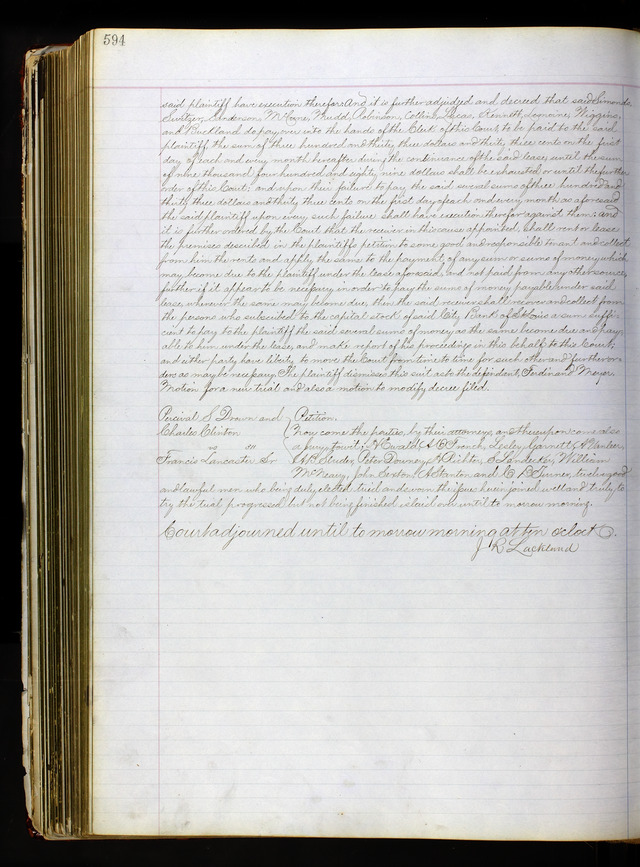 594
said plaintiff have execution therefor. And it is further adjudged and decreed that said Simonds
Switzer, Anderson, McCune, Mudd, Robinson, Collins, Lucas, Bennett, Lemoine, Wiggins,
and Buckland do pay over into the hands of the Clerk of this Court, to be paid to the said
plaintiff the sum of three hundred and thirty three dollars and thirty three cents on the first
day of each and every month hereafter during the continuance of the said lease, until the sum
of nine thousand four hundred and eighty nine dollars shall be exhausted or until the further
order of this Court; and upon their failure to pay the said several sums of three hundred and
thirty three dollars and thirty three cents on the first day of each and every month as aforesaid
the said plaintiff upon every such failure shall have execution therefor against them; and
it is further ordered by the Court that the receiver in this cause appointed, shall rent or lease
the premises described in the plaintiffs petition to some good and responsible tenant and collect
from him the rents and apply the same to the payment of any sum or sums of money which
may become due to the plaintiff under the lease aforesaid and not paid from any other source,
further if it appear to be necessary in order to pay the sums of money payable under said
lease, whenever the same may become due, then the said receiver shall recover and collect from
the persons who subscribed to the capital stock of said City Bank of St Louis a sum suffi-
cient to pay to the plaintiff the said several sums of money as the same become due and pay-
able to him under the lease, and make report of his proceedings in this behalf to this Court;
and either party have liberty to move the Court from time to time for such other and further or-
ders as may be necessary. The plaintiff dismisses this suit as to the defendant, Ferdinand Meyer.
Motion for a new trial and also a motion to modify decree filed.
Percival S Drown and } Petition.
Charles Clinton } Now come the parties, by their attorneys, and thereupon come also
vs a jury, towit; Ewald, A B French, Lesley Garnett, A
Francis Lancaster Sr Studer, Peter Downey, Richter, William
McNeary, John Sexton, A Stanton and C B Turner, twelve good
and lawful men who being duly elected, tried and sworn the issue herein joined well and truly to
try the trial progressed but not being finished is laid over until to morrow morning.
Court adjourned until to morrow morning at ten oclock.
J R Lackland